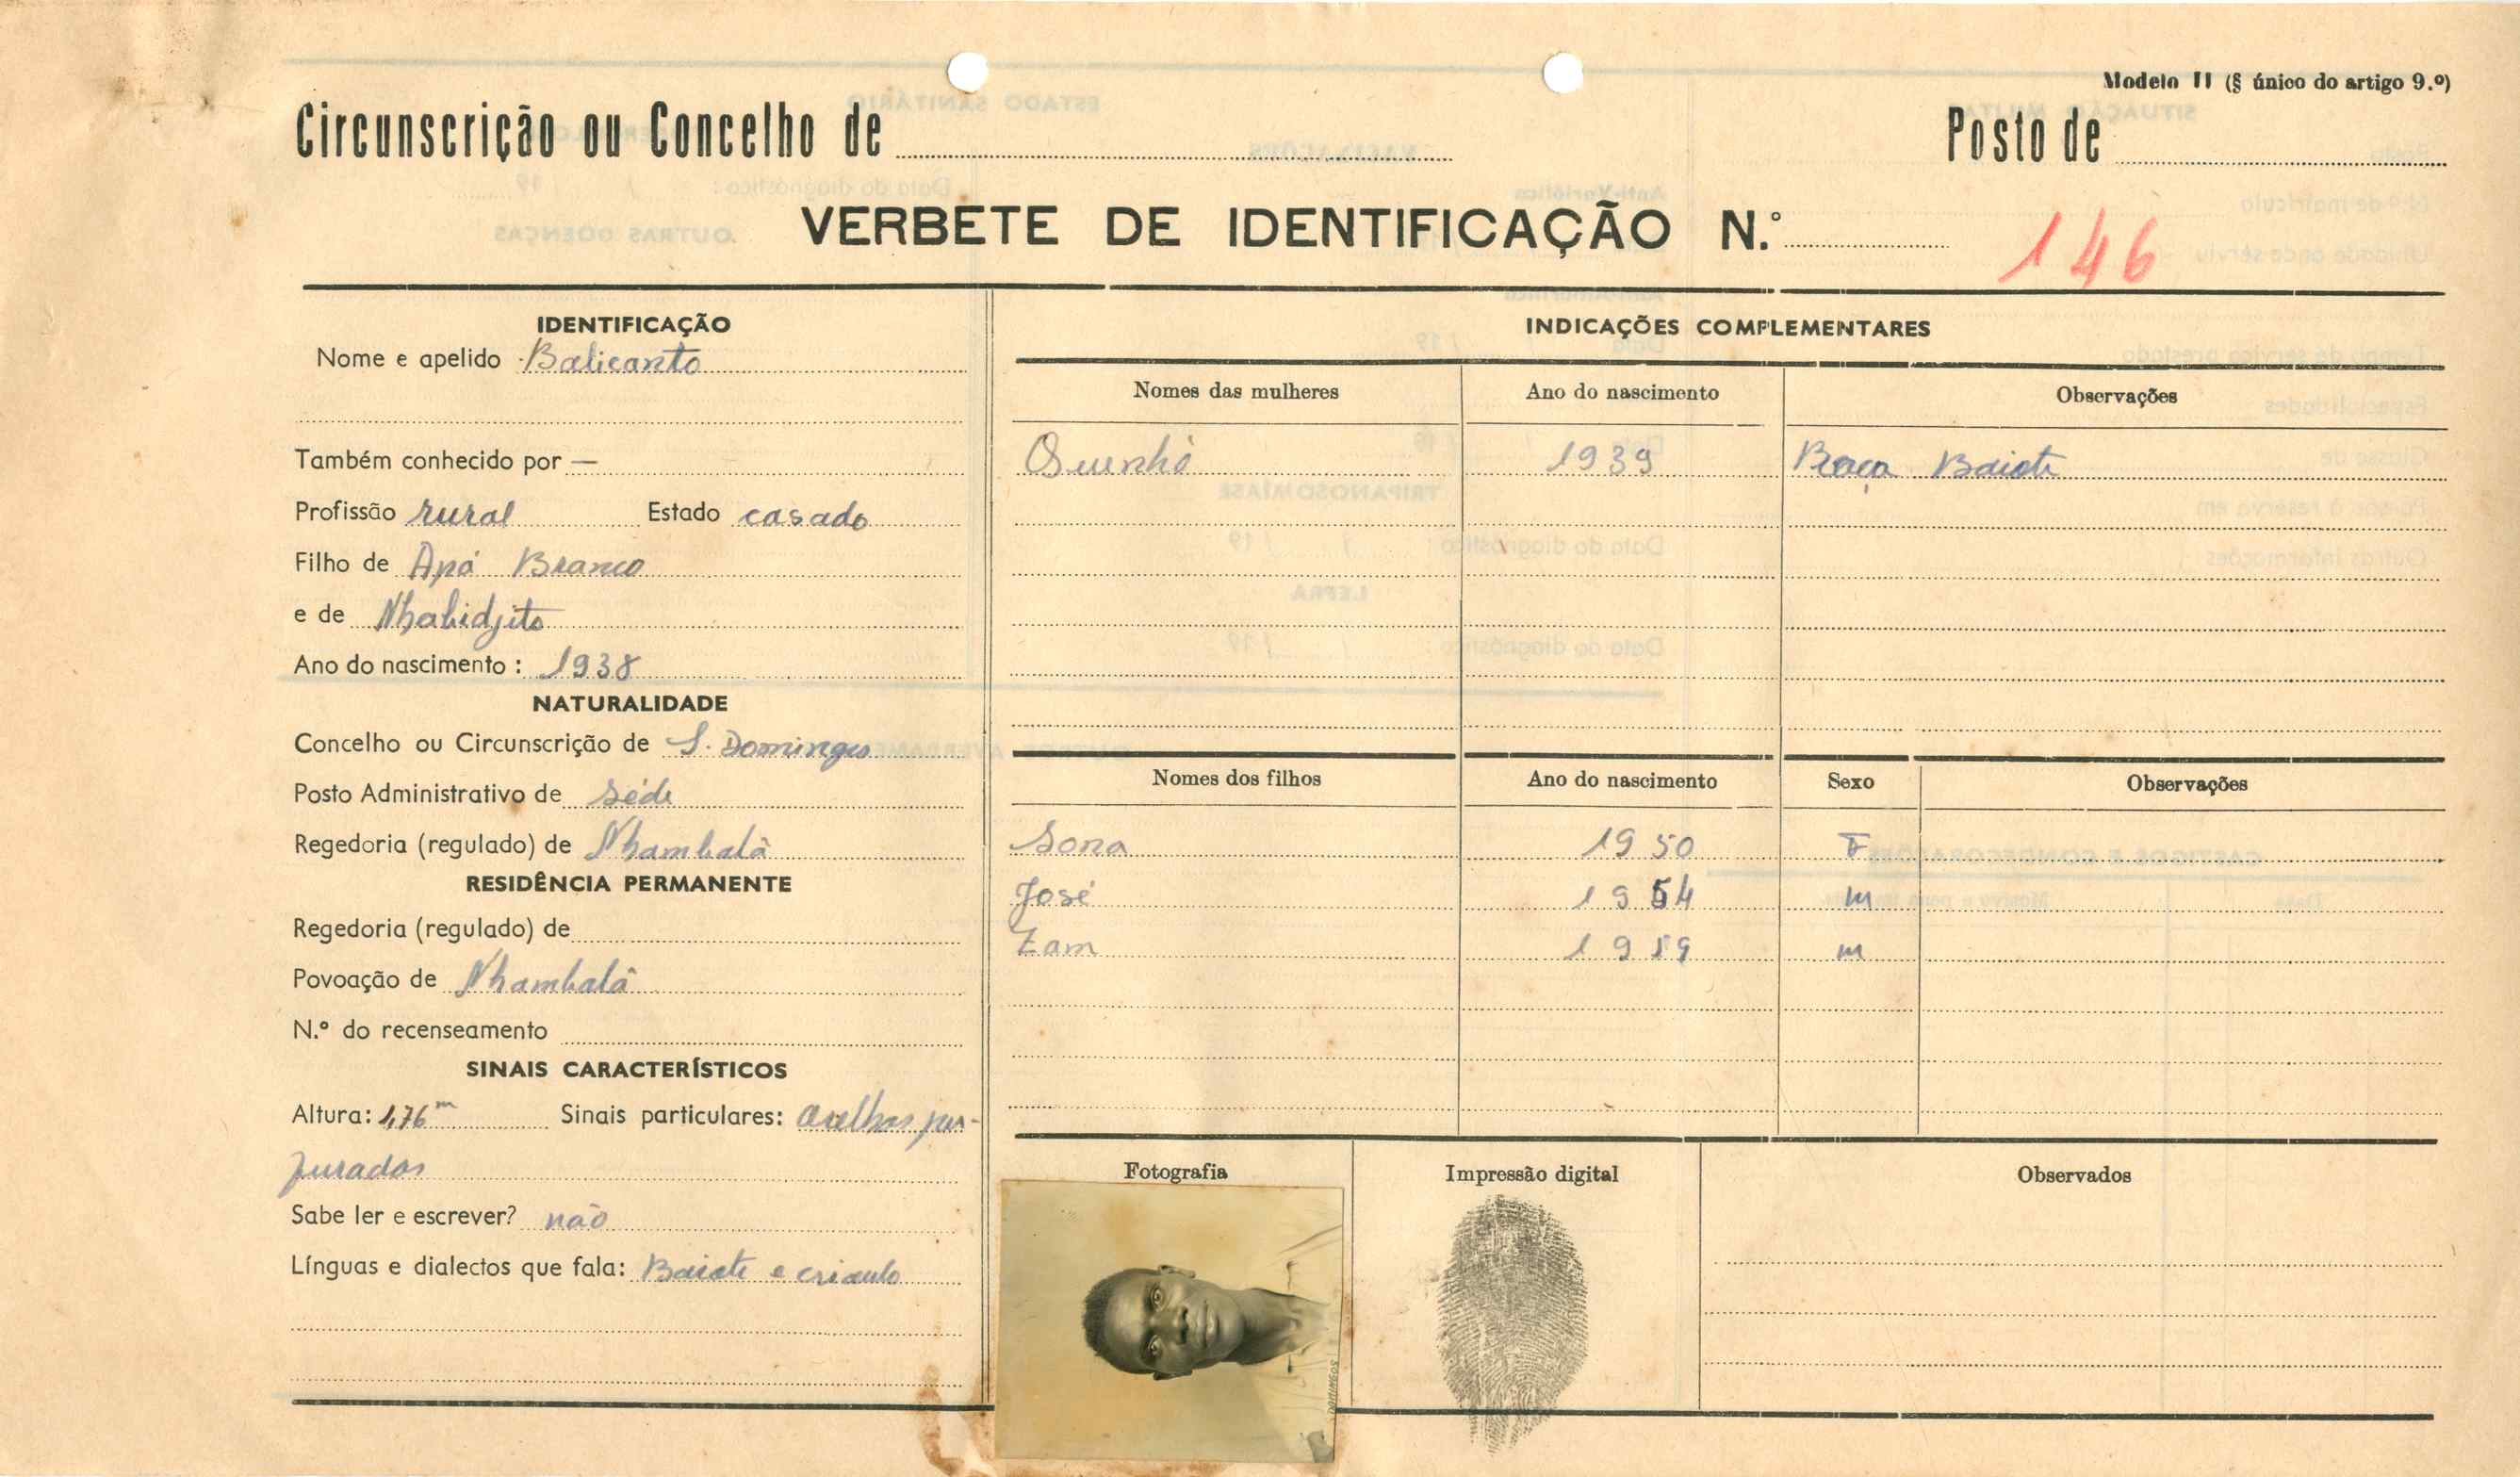 Modelo II (§ único do artigo 9.º)
Circunscrição ou Concelho de
Posto de
VERBETE DE IDENTIFICAÇÃO N.º 146
IDENTIFICAÇÃO
Nome e apelido Balicanto
Também conhecido por —
Profissão rural Estado casado
Filho de Apá Branco
e de Nhabidjito
Ano do nascimento: 1938
NATURALIDADE
Concelho ou Circunscrição de S. Domingos
Posto Administrativo de Séde
Regedoria (regulado) de Nhambalã
RESIDÊNCIA PERMANENTE
Regedoria (regulado) de
Povoação de Nhambalã
N.º do recenseamento
SINAIS CARACTERÍSTICOS
Altura: 1,76m Sinais particulares: orelhas per-
furadas
Sabe ler e escrever? não
Línguas e dialectos que fala: Baiote e crioulo
INDICAÇÕES COMPLEMENTARES
Nomes das mulheres Ano do nascimento Observações
Quenhó 1939 Raça Baiote
Nomes dos filhos Ano do nascimento Sexo Observações
Sona 1950 F
José 1954 m
Zam 1959 m
Fotografia Impressão digital Observados